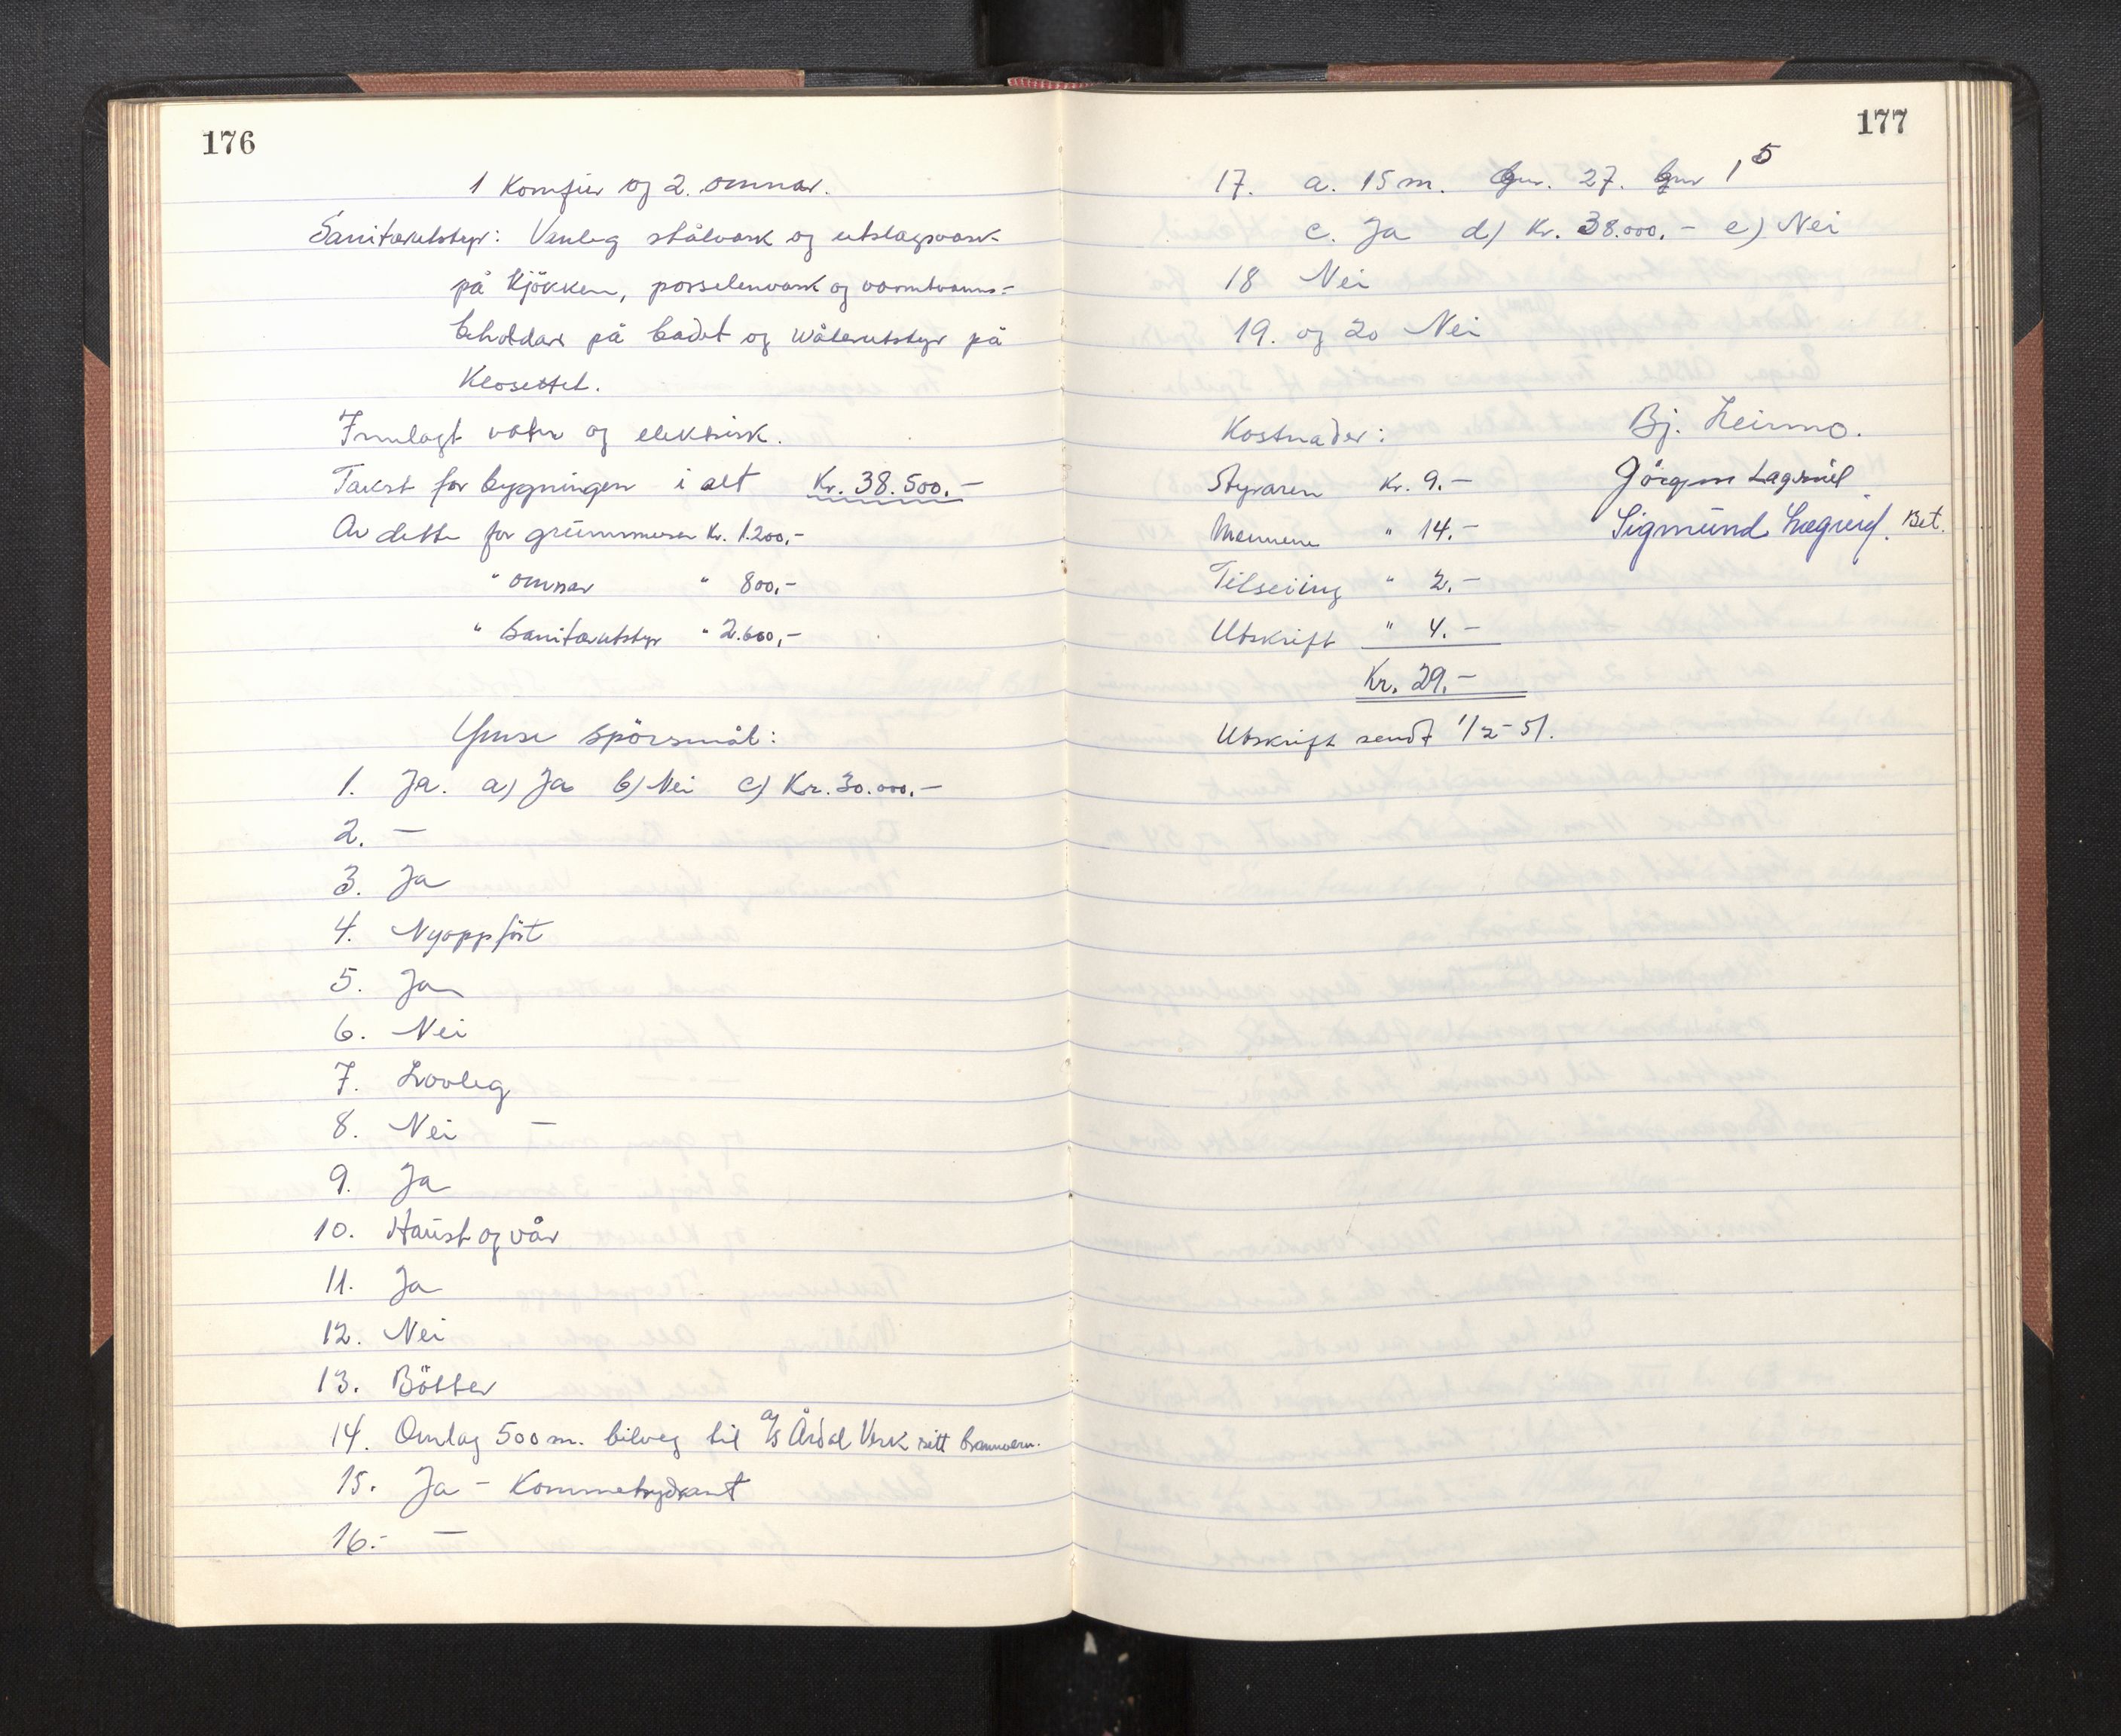 176
1 Komfur og 2. omnar.
Sanitærutstyr: Vanleg stålvask og utslagsvask
på kjökken, porselenvask og varmtvanns=
beholdar på badet og wåterutstyr på
Klosettet.
Innlagt vatn og elektrisk.
Takst for bygningen i alt Kr. 38.500,-
Av dette for grunnmuren Kr. 1.200,-
" omnar " 800,-
" Sanitærutstyr " 2.600,-
Ymse spörsmål:
1. Ja. a) Ja b) Nei c) Kr. 30.000,-
2. —
3. Ja
4. Nyoppfört
5. Ja
6. Nei
7. Lovleg
8. Nei —
9. Ja
10. Haust og vår
11. Ja
12. Nei
13. Bötter
14. Omlag 500 m. bilveg til a/s Årdal Verk sitt brannvern.
15. Ja - Kommehydrant
16.- —
177
17. a. 15 m. Gnr. 27. bnr 15
c. Ja d) Kr. 38.000.- e) Nei
18 Nei
19. og 20 Nei
Kostnader: Bj. Leirmo.
Styraren Kr. 9.- Jörgen Lægreid
Mennene " 14.- Sigmund Lægreid. Bet.
Tilseiing " 2.-
Utskrift " 4.-
Kr. 29.-
Utskrift sendt 1/2-51.